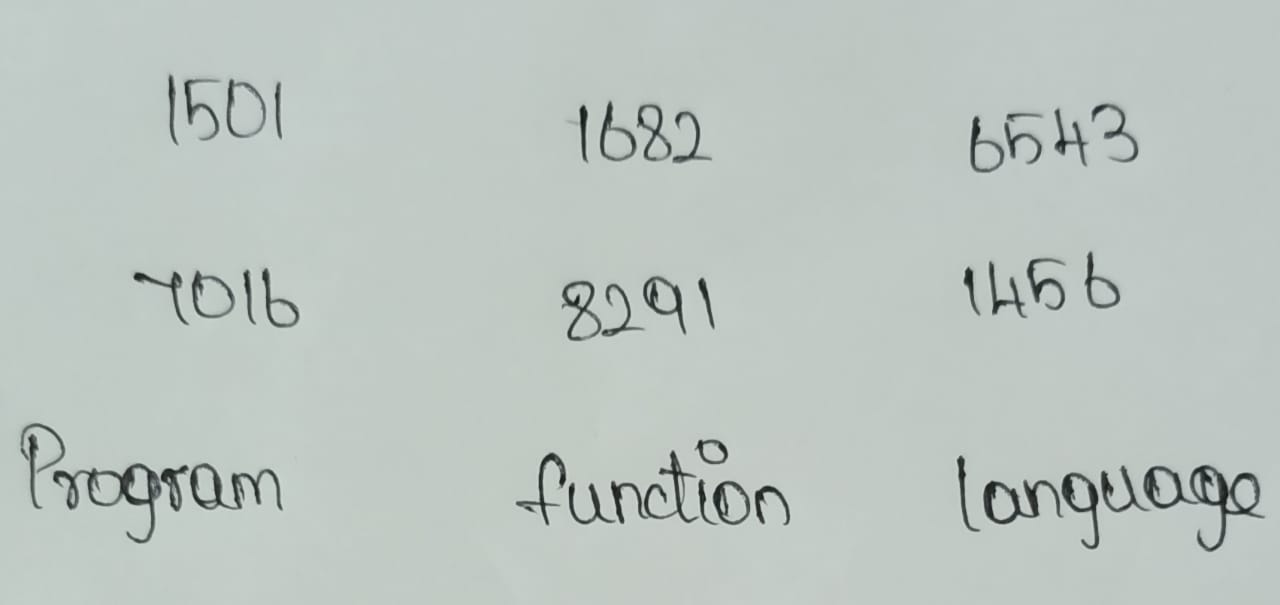 1501 1682 6543
7016 8291 1456
Program function language